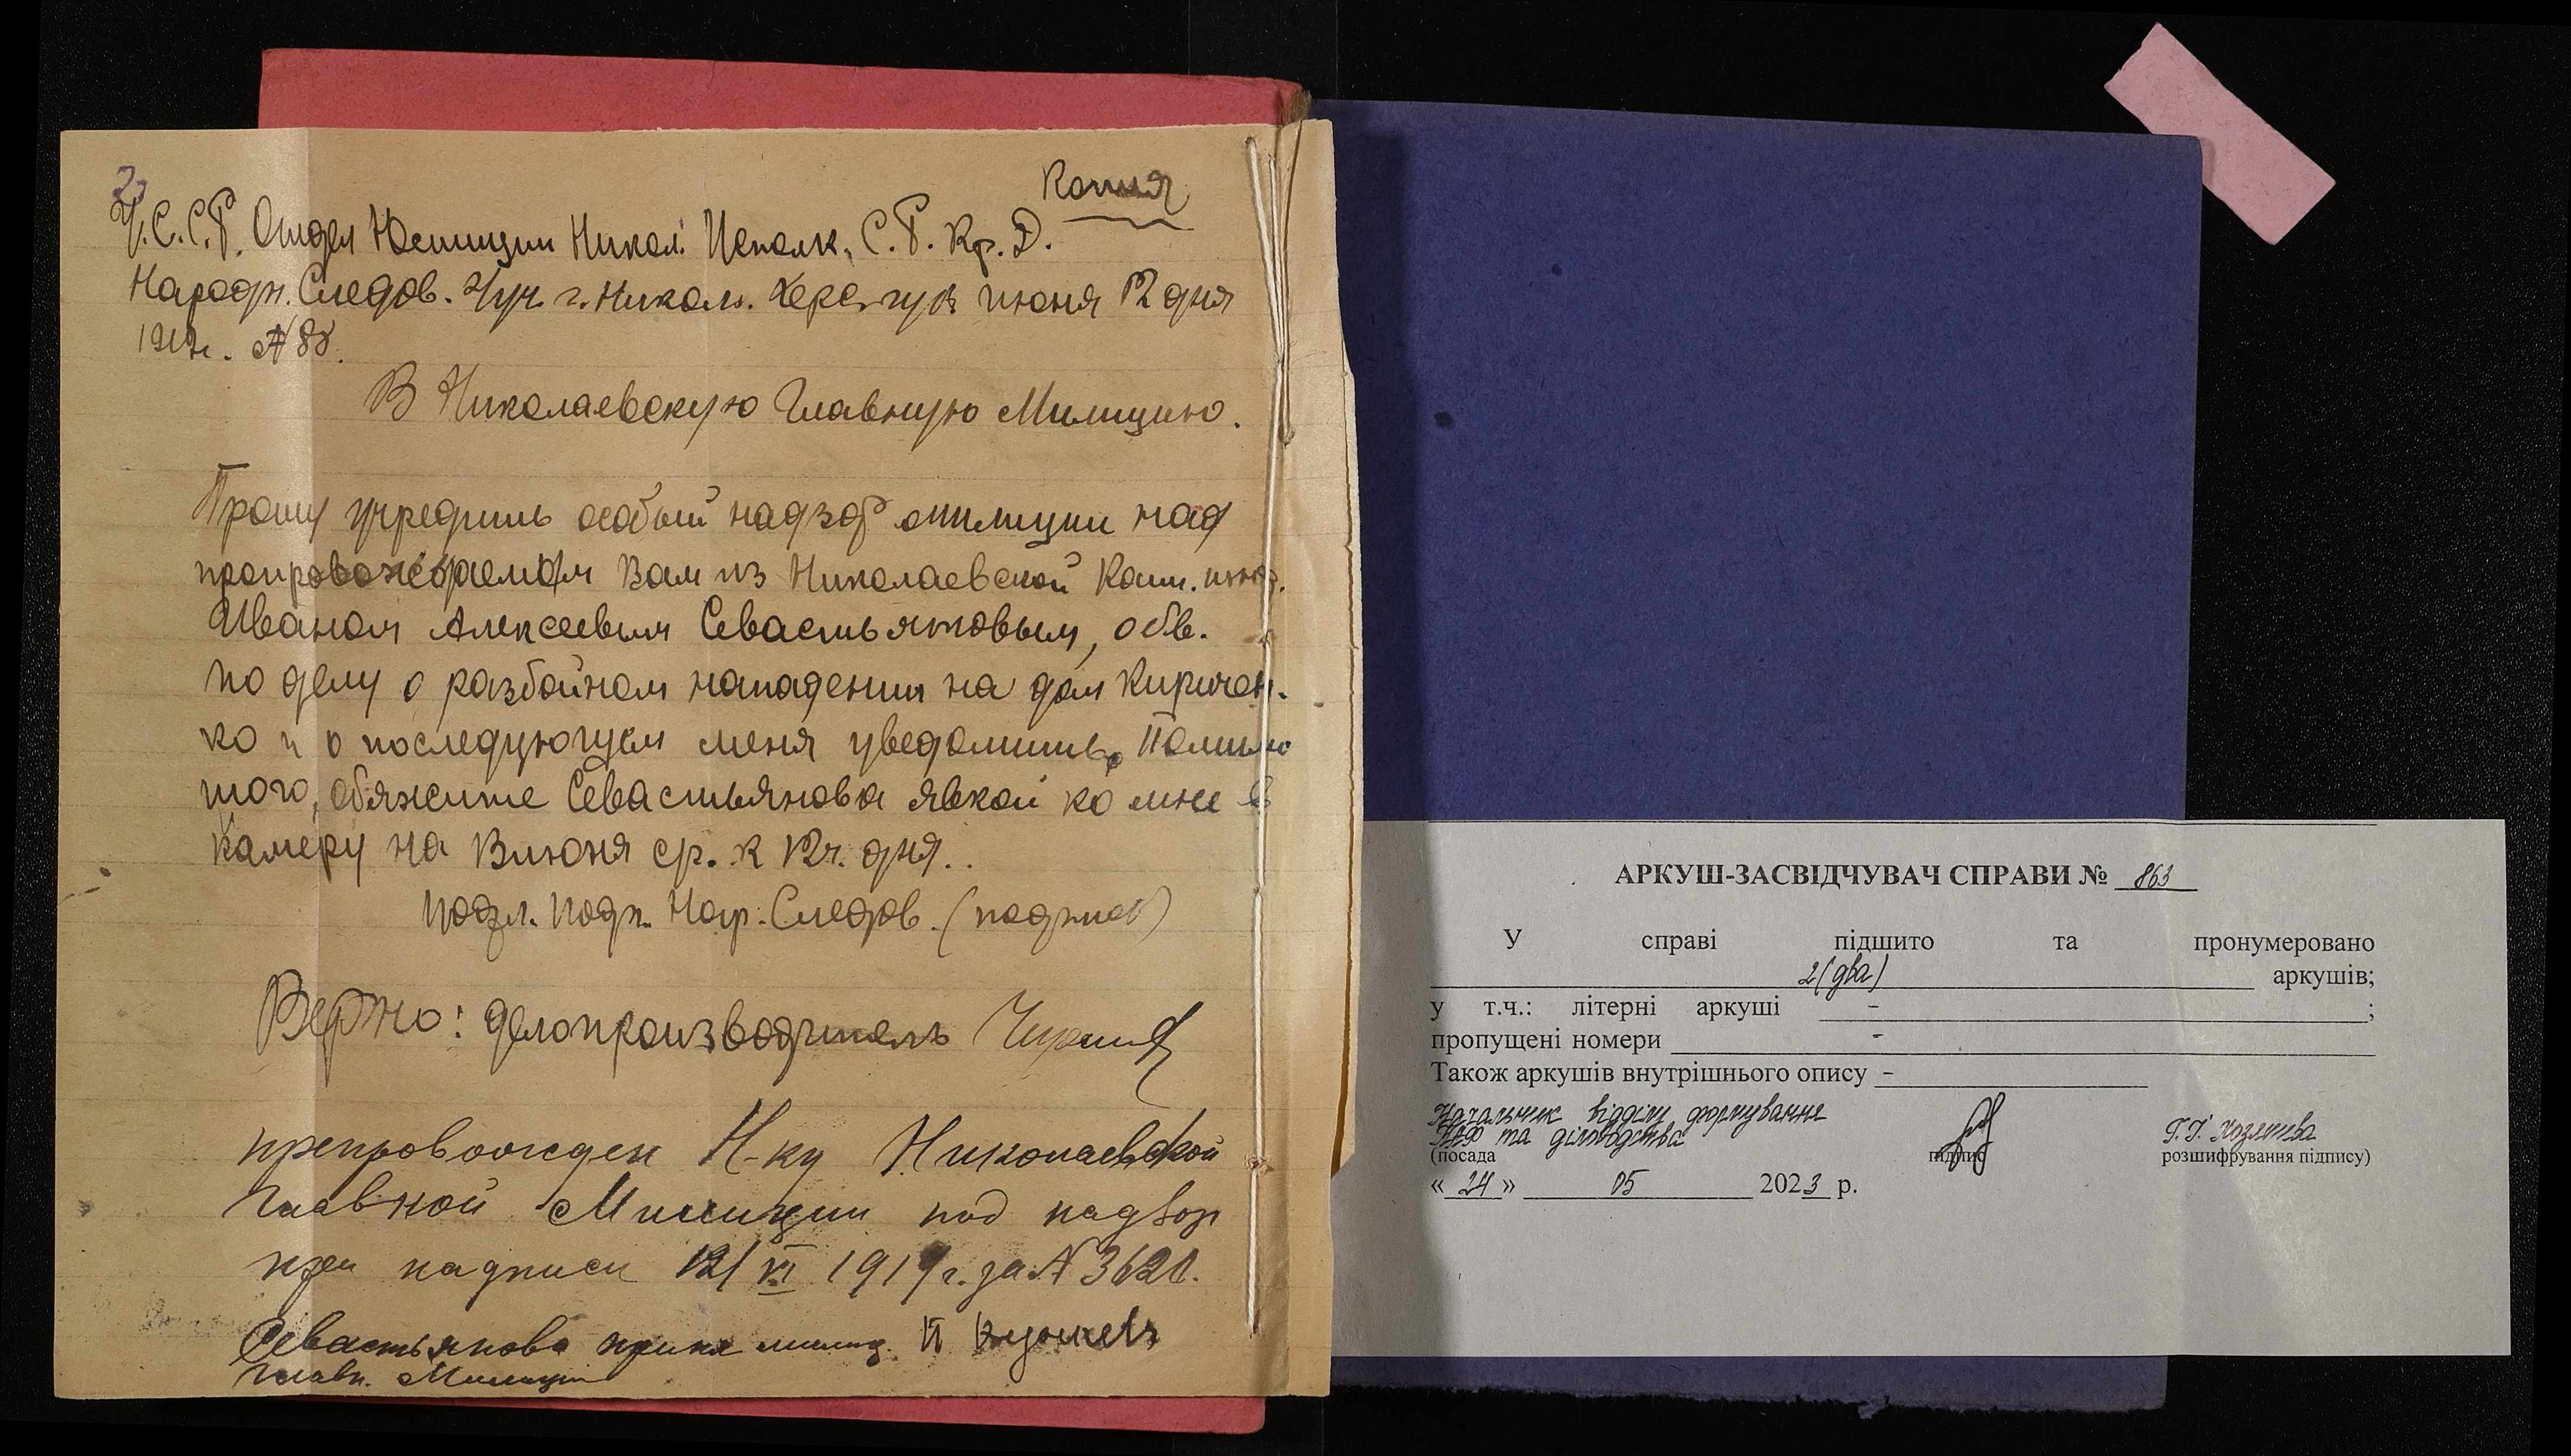 2
Копия
У.С.С.Р. Отдел Юстиции Никол. Исполк. С.Р.Кр.Д.
Народн. Следов. 4 уч. г. Никол. Херс. губ июня 12 дня
1919 г. № 88.
В Николаевскую Главную Милицию.
Прошу учредить особый надзор милиции над
препровождаемым Вам из Николаевской
Иваном Алексеевым Севастьяновым, обв.
по делу о разбойном нападении на дом Киричен-
ко и о последующем меня уведомить. Помимо
того, обяжите Севастьянова явкой ко мне в
камеру на июня ср. к 12 ч. дня.
подл. подп. Нар. Следов. (подпись)
Верно: делопроизводитель
препровожден Н-ку Николаевской
Главной Милиции под надзор
при надписи 12/VI 1919 г. за № 3621.
Севастьянова принял милиц.
Главн. Милиции
АРКУШ-ЗАСВІДЧУВАЧ СПРАВИ № 863
У справі підшито та пронумеровано
2 (два) аркушів;
у т.ч.: літерні аркуші - ;
пропущені номери -
Також аркушів внутрішнього опису -
Начальник відділу формування
НАФ та діловодства
(посада підпис розшифрування підпису)
« 24 » 05 2023 р.